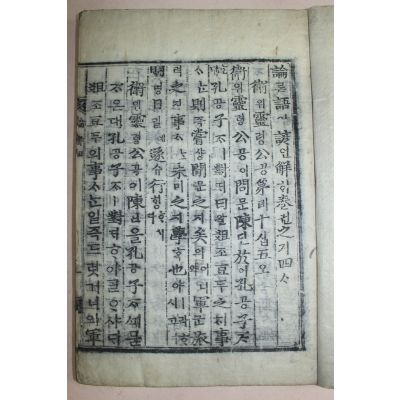 論론語어諺언解ᄒᆡ卷권之지四ᄉᆞ
衛위靈령公공第뎨十십五오
衛위靈령公공이問문陳딘於어孔공子ᄌᆞ
孔공子ᄌᆞㅣ對ᄃᆡ曰왈俎조豆두之지事
ᄉᆞᄂᆞᆫ則즉嘗샹聞문之지矣의어니와軍군旅
려之지事ᄉᆞᄂᆞᆫ未미之지學ᄒᆞᆨ也야
明명日일에遂슈行ᄒᆡᆼ
衛위靈령公공이陳딘을孔공子ᄌᆞᄭᅴ묻
ᄌᆞ온대孔공子ᄌᆞㅣ對ᄃᆡᄒᆞ야ᄀᆞᆯᄋᆞ샤ᄃᆡ
俎조豆두의事ᄉᆞᄂᆞᆫ일즉드럿거니와軍